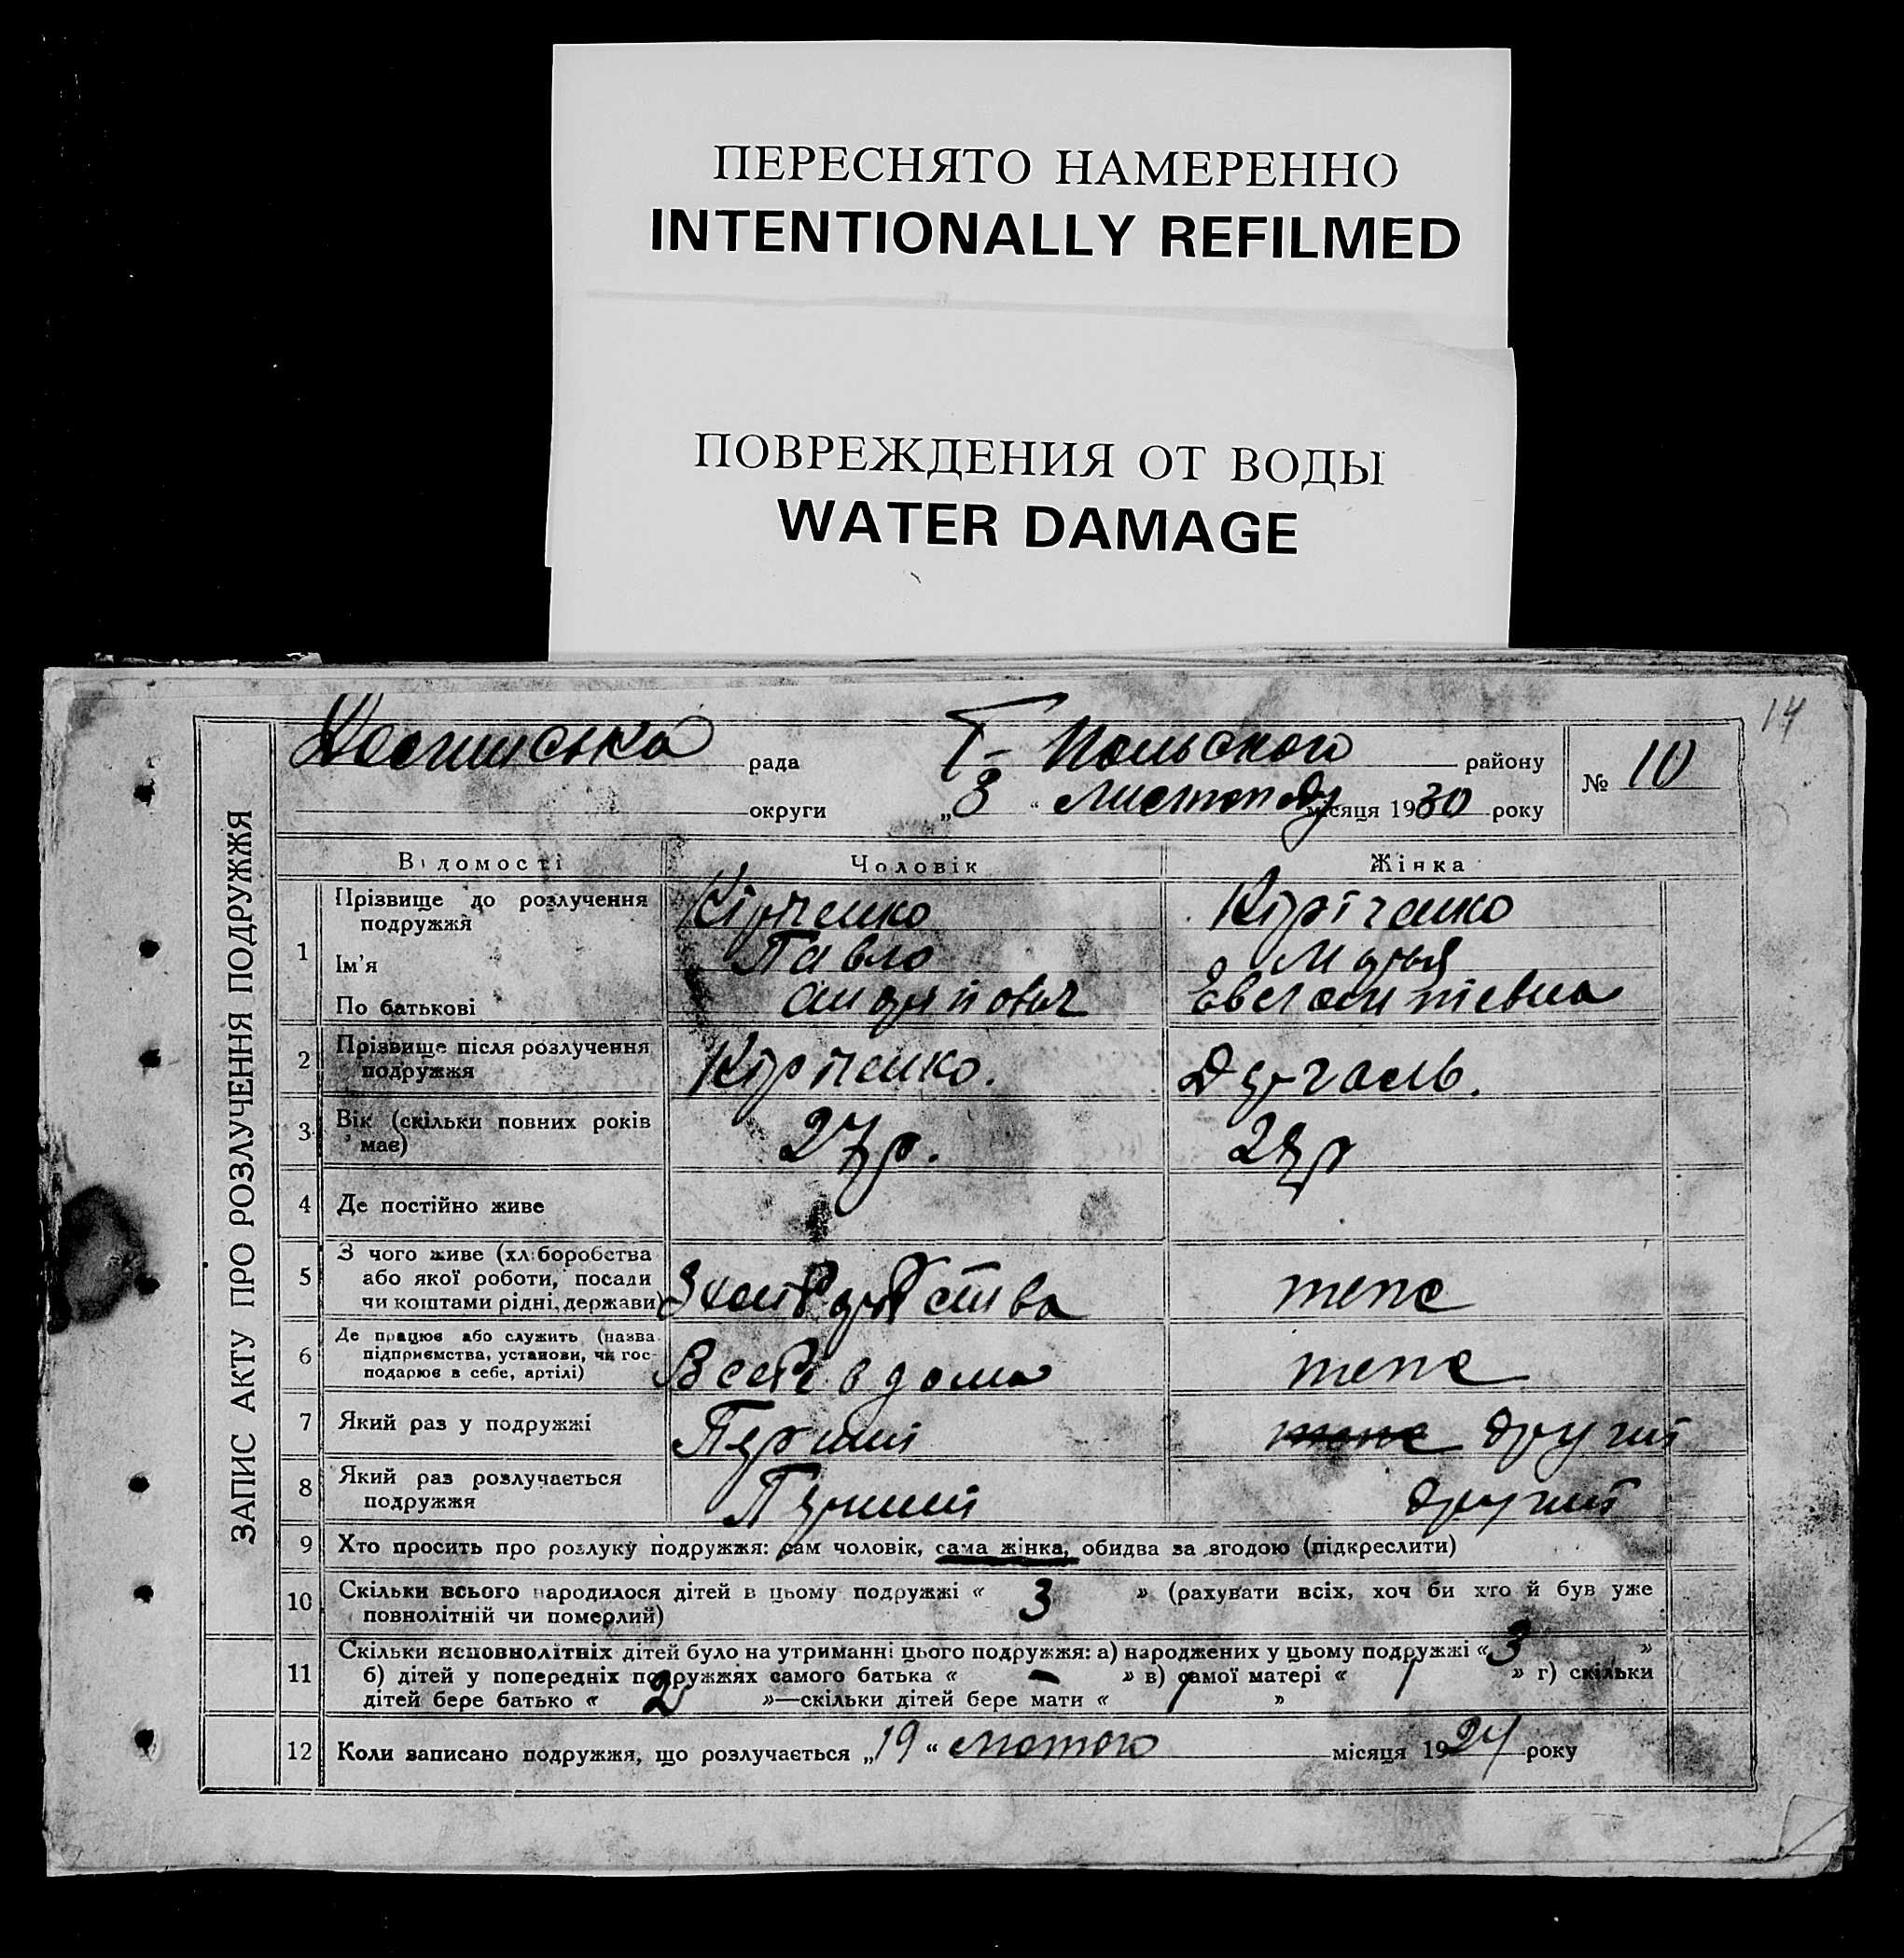 ПЕРЕСНЯТО НАМЕРЕННО
INTENTIONALLY REFILMED
ПОВРЕЖДЕНИЯ ОТ ВОДЫ
WATER DAMAGE
14
ЗАПИС АКТУ ПРО РОЗЛУЧЕННЯ ПОДРУЖЖЯ
рада Г- Польского району № 10
округи „8“ Листопаду місяця 1930 року
Відомості Чоловік Жінка
1 Прізвище до розлучення подружжя Кіріченко Кіріченко
Ім'я Павло Марья
По батькові Андрійович
2 Прізвище після розлучення подружжя Кіріченко. Дергаль.
3 Вік (скільки повних років має) 27 р. 28 р
4 Де постійно живе
5 З чого живе (хліборобства
або якої роботи, посади
чи коштами рідні, держави) З хліборобства теж
6 Де працює або служить (назва
підприємства, установи, чи гос-
подарює в себе, артілі) В себе в дома теж
7 Який раз у подружжі Перший другий
8 Який раз розлучається
подружжя Перший другий
9 Хто просить про розлуку подружжя: сам чоловік, сама жінка, обидва за згодою (підкреслити)
10 Скільки всього народилося дітей в цьому подружжі « 3 » (рахувати всіх, хоч би хто й був уже
повнолітній чи померлий)
11 Скільки неповнолітніх дітей було на утриманні цього подружжя: а) народжених у цьому подружжі « 3 »
б) дітей у попередніх подружжях самого батька « – » в) самої матері « 1 » г) скільки
дітей бере батько « 2 »—скільки дітей бере мати « 1 »
12 Коли записано подружжя, що розлучається „19“ лютого місяця 1924 року